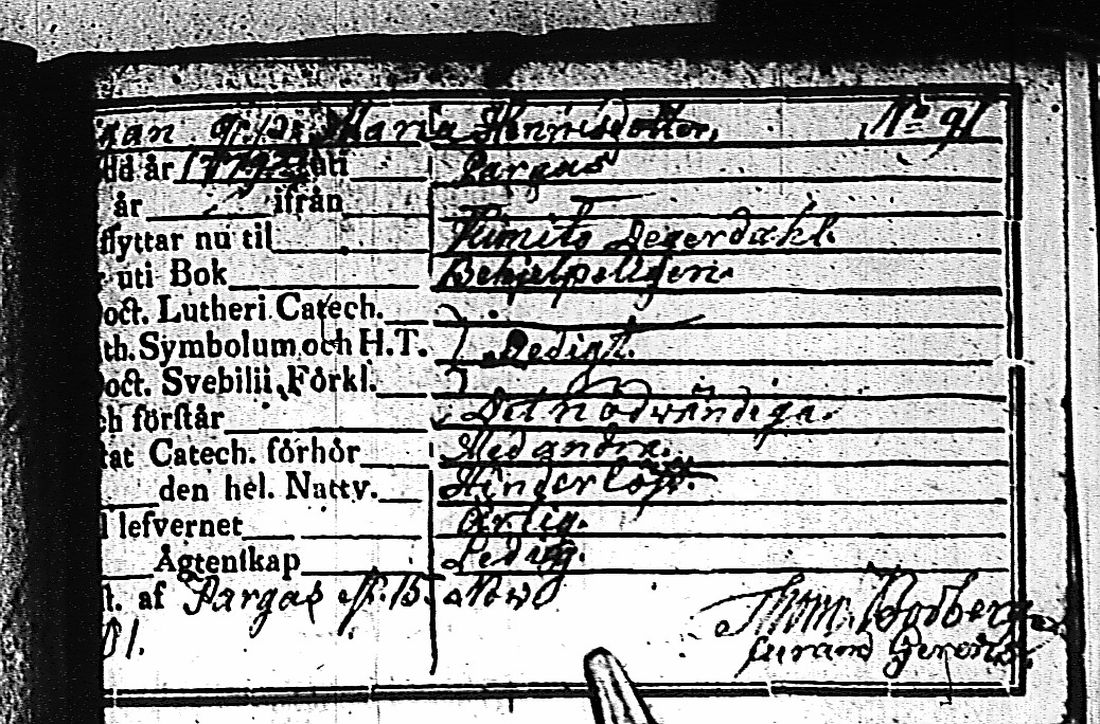 Maria Henricsdotter, No 91
år 179 uti Pargas
år ifrån
flyttar nu til Kimito Degerdahl.
uti Bok Behjelpeligen
Doct. Lutheri Catech.
Ath. Symbolum och H.T. Redigt.
Doct. Svebilii Förkl.
och förstår Det Nödvändiga.
Catech. förhör Med andra.
den hel. Nattv. Hinderlös.
lefvernet Ärlig.
Ägtenskap Ledig.
af Pargas 15 Nov
01. Thom. Bodberg